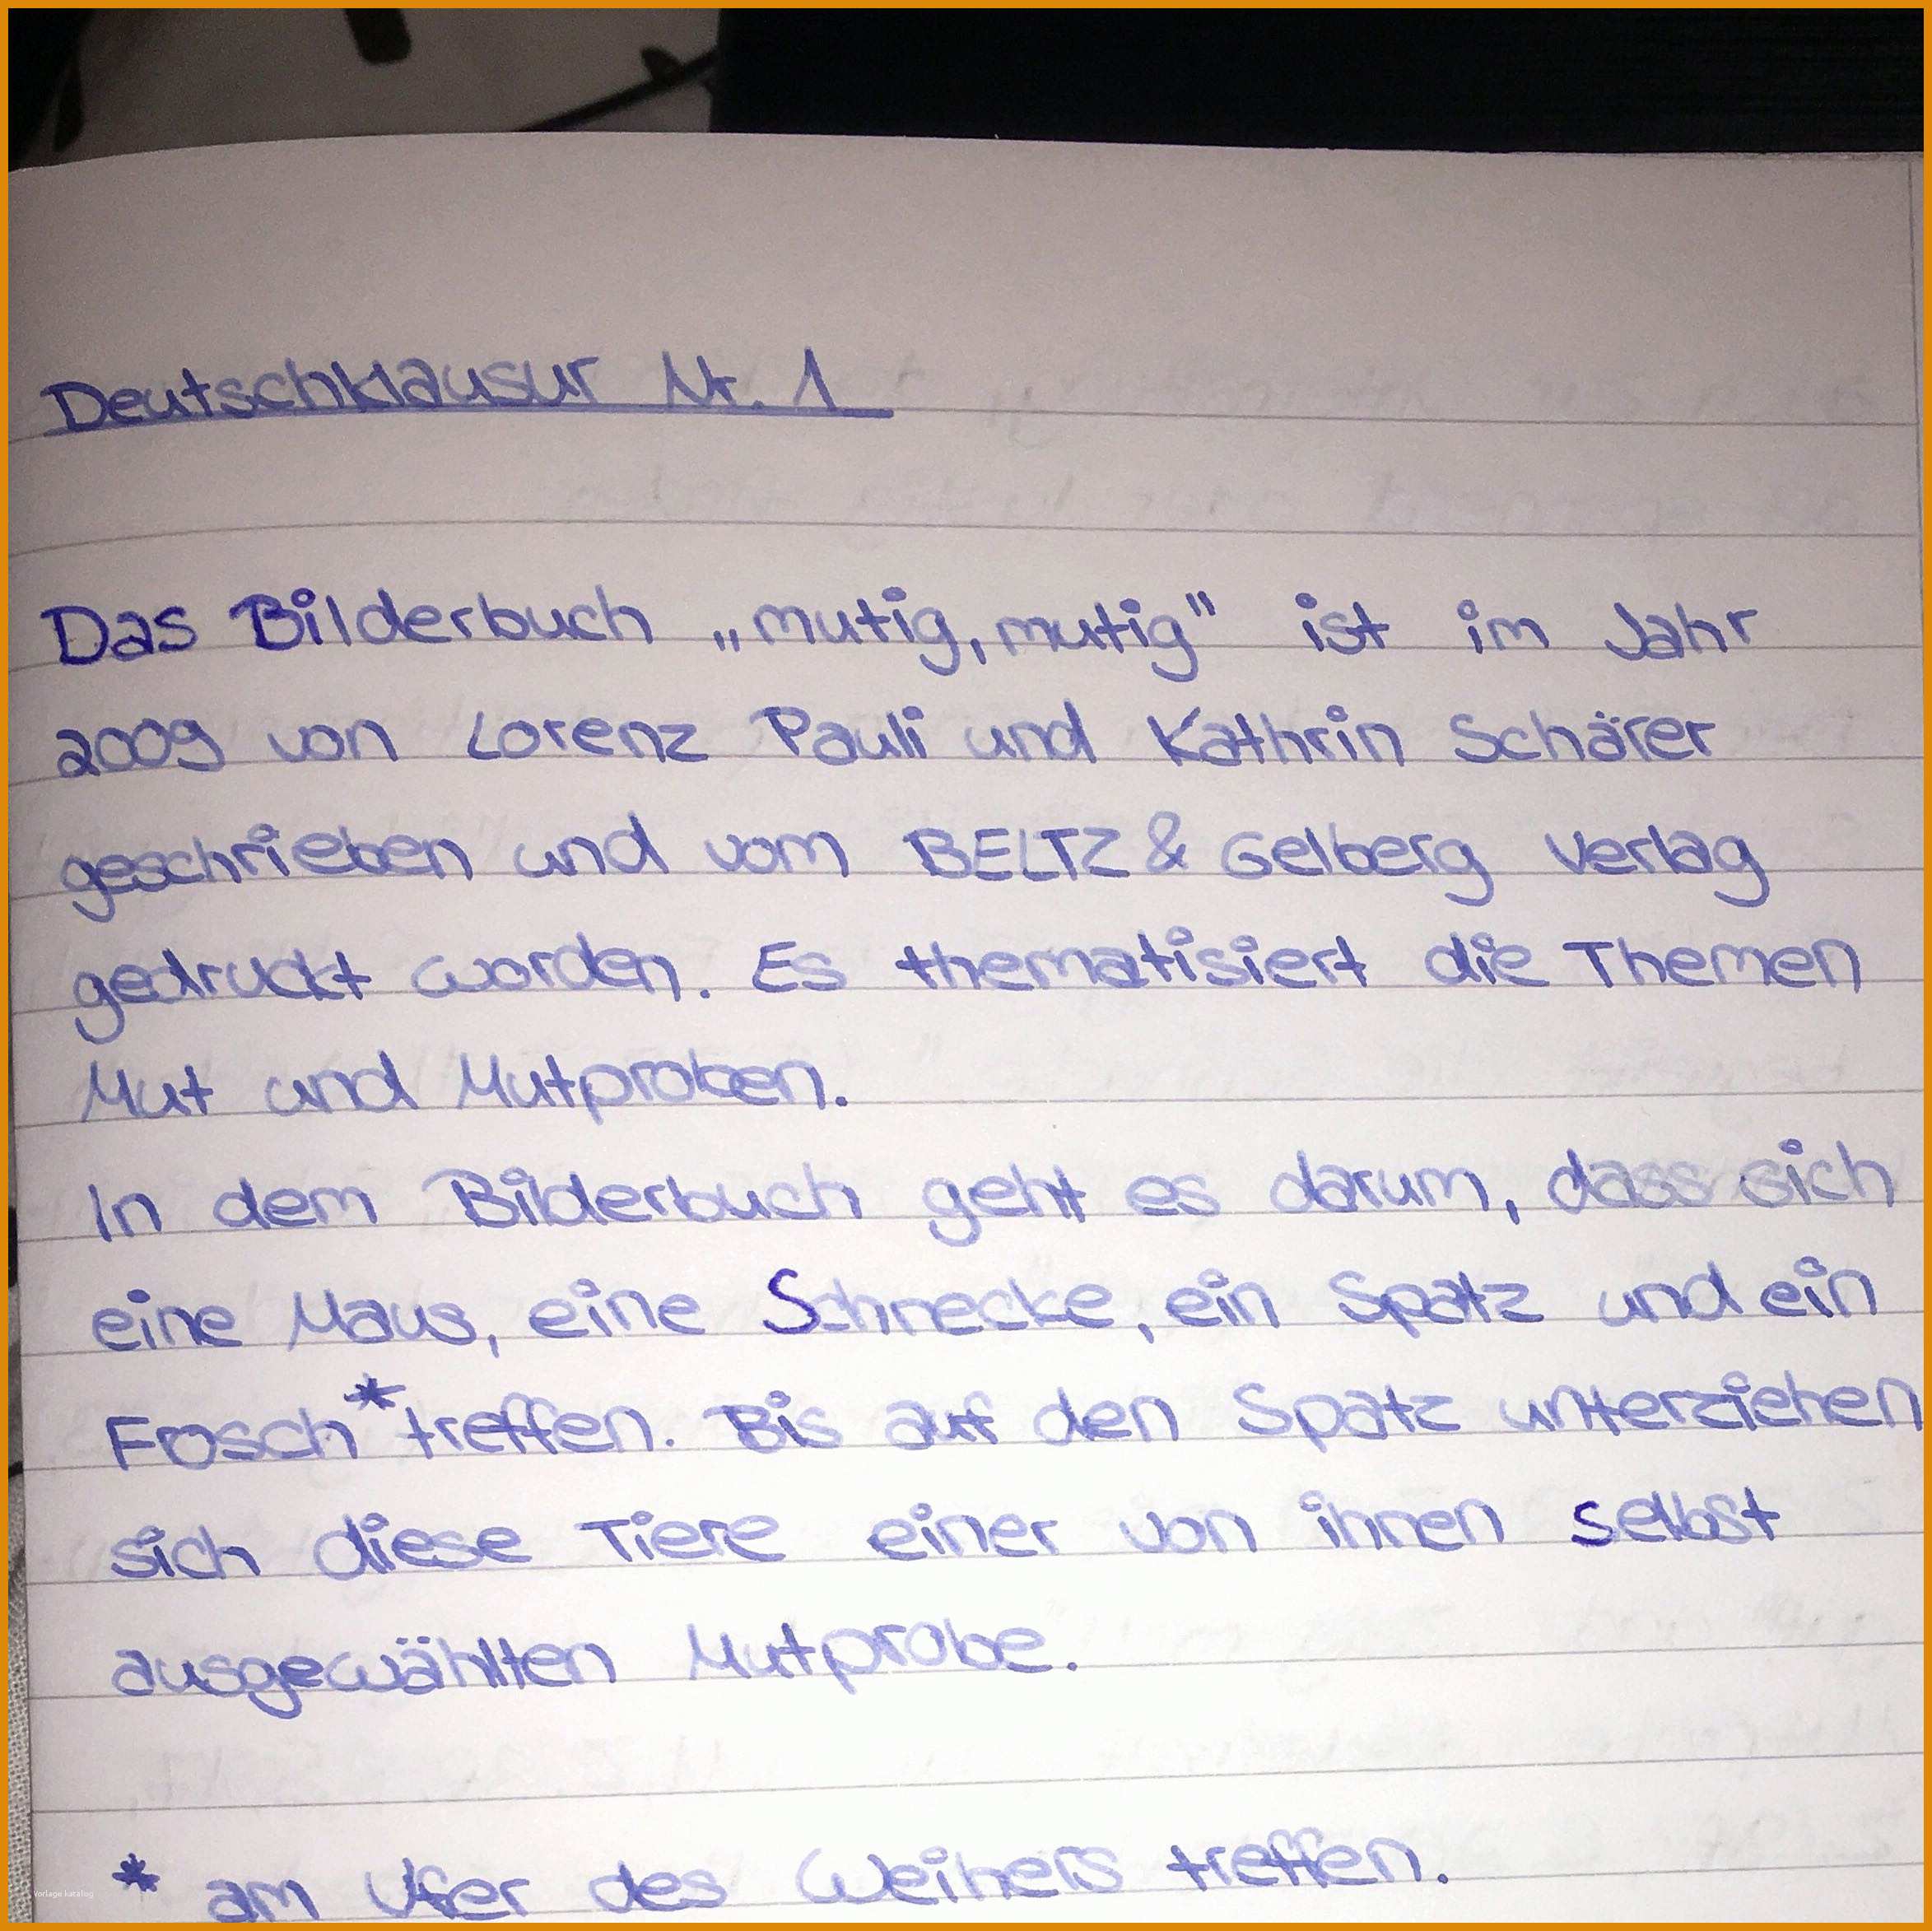 Deutschklausur Nr. 1
Das Bilderbuch „mutig, mutig“ ist im Jahr
2009 von Lorenz Pauli und Kathrin Schärer
geschrieben und vom BELTZ & Gelberg Verlag
gedruckt worden. Es thematisiert die Themen
Mut und Mutproben.
In dem Bilderbuch geht es darum, dass sich
eine Maus, eine Schnecke, ein Spatz und ein
Frosch* treffen. Bis auf den Spatz unterziehen
sich diese Tiere einer von ihnen selbst
ausgewählten Mutprobe.
* am Ufer des Weihers treffen.
Vorlage katalog